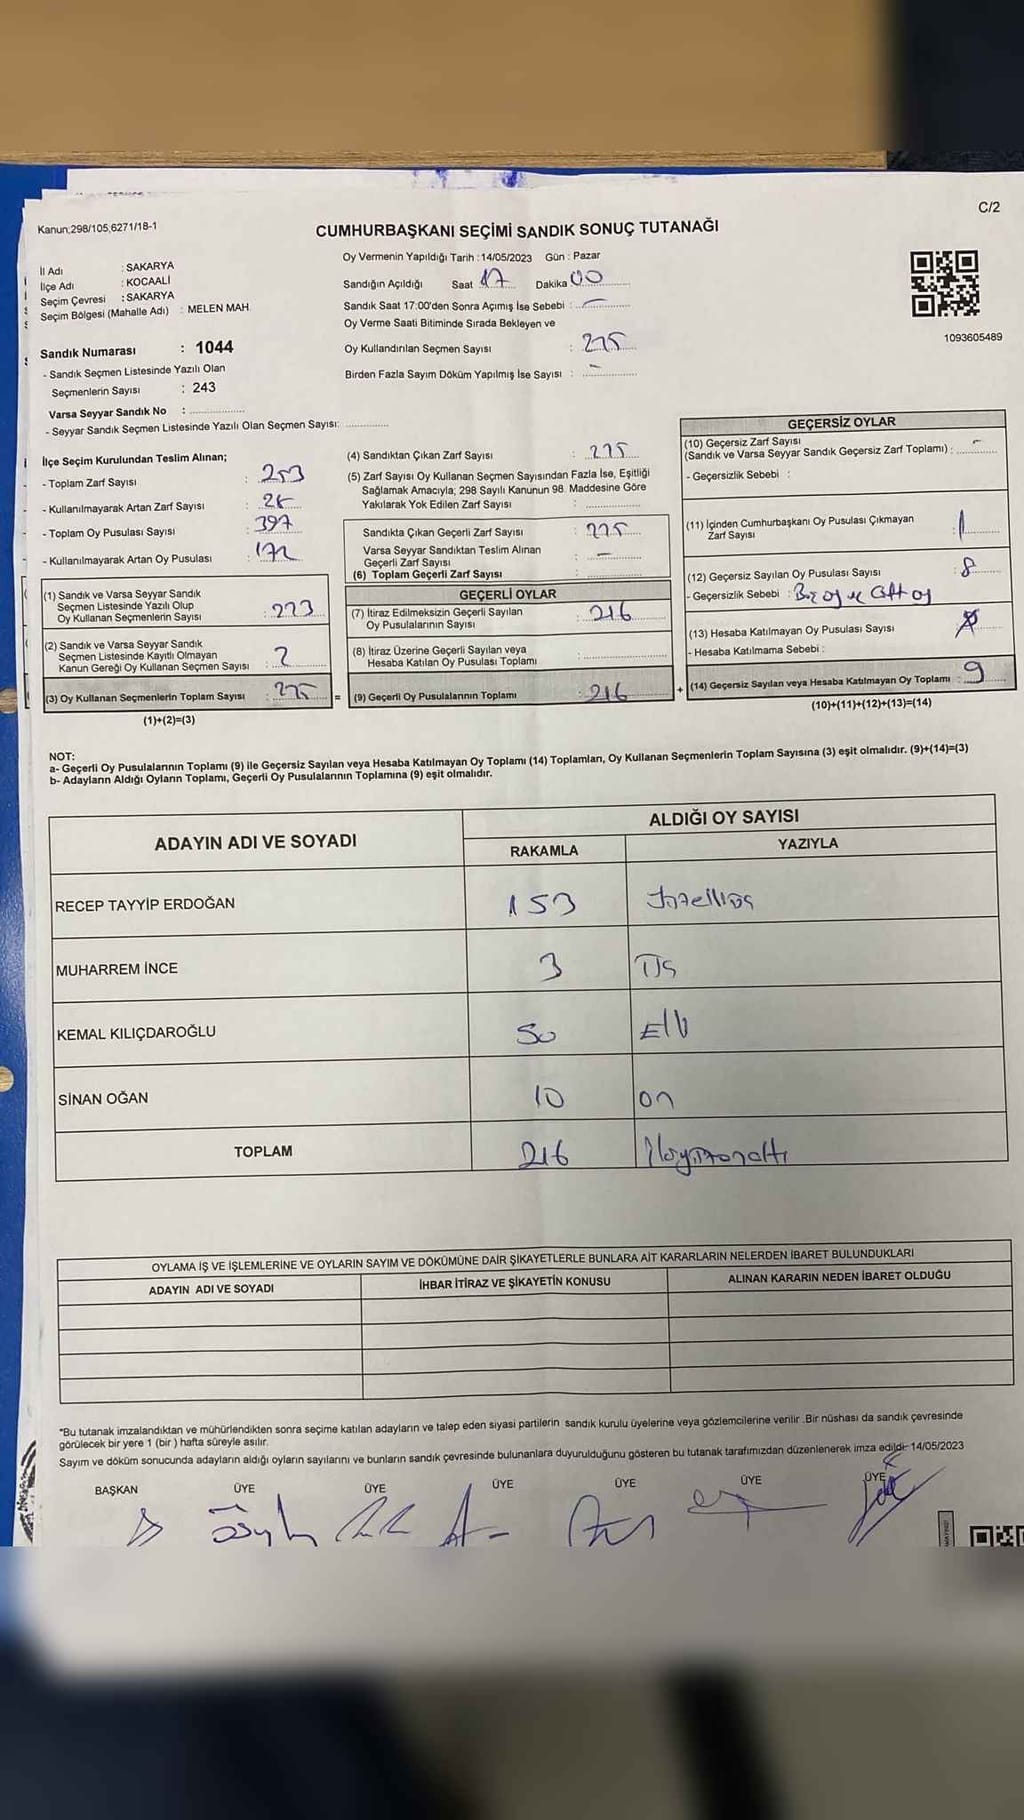 C/2
Kanun;298/105,6271/18-1
CUMHURBAŞKANI SEÇİMİ SANDIK SONUÇ TUTANAĞI
İl Adı : SAKARYA
İlçe Adı : KOCAALİ
Seçim Çevresi : SAKARYA
Seçim Bölgesi (Mahalle Adı) : MELEN MAH.
Sandık Numarası : 1044
- Sandık Seçmen Listesinde Yazılı Olan
Seçmenlerin Sayısı : 243
Varsa Seyyar Sandık No :
- Seyyar Sandık Seçmen Listesinde Yazılı Olan Seçmen Sayısı:
Oy Vermenin Yapıldığı Tarih : 14/05/2023 Gün : Pazar
Sandığın Açıldığı Saat 17 Dakika 00
Sandık Saat 17:00'den Sonra Açımış İse Sebebi : -
Oy Verme Saati Bitiminde Sırada Bekleyen ve
Oy Kullandırılan Seçmen Sayısı : 225
Birden Fazla Sayım Döküm Yapılmış İse Sayısı : -
1093605489
İlçe Seçim Kurulundan Teslim Alınan;
- Toplam Zarf Sayısı : 253
- Kullanılmayarak Artan Zarf Sayısı : 28
- Toplam Oy Pusulası Sayısı : 397
- Kullanılmayarak Artan Oy Pusulası : 172
(1) Sandık ve Varsa Seyyar Sandık
Seçmen Listesinde Yazılı Olup
Oy Kullanan Seçmenlerin Sayısı : 223
(2) Sandık ve Varsa Seyyar Sandık
Seçmen Listesinde Kayıtlı Olmayan
Kanun Gereği Oy Kullanan Seçmen Sayısı : 2
(3) Oy Kullanan Seçmenlerin Toplam Sayısı : 225 =
(1)+(2)=(3)
(4) Sandıktan Çıkan Zarf Sayısı : 225
(5) Zarf Sayısı Oy Kullanan Seçmen Sayısından Fazla İse, Eşitliği
Sağlamak Amacıyla; 298 Sayılı Kanunun 98. Maddesine Göre
Yakılarak Yok Edilen Zarf Sayısı :
Sandıkta Çıkan Geçerli Zarf Sayısı : 225
Varsa Seyyar Sandıktan Teslim Alınan
Geçerli Zarf Sayısı : -
(6) Toplam Geçerli Zarf Sayısı :
GEÇERLİ OYLAR
(7) İtiraz Edilmeksizin Geçerli Sayılan
Oy Pusulalarının Sayısı : 216
(8) İtiraz Üzerine Geçerli Sayılan veya
Hesaba Katılan Oy Pusulası Toplamı :
(9) Geçerli Oy Pusulalarının Toplamı : 216 +
GEÇERSİZ OYLAR
(10) Geçersiz Zarf Sayısı
(Sandık ve Varsa Seyyar Sandık Geçersiz Zarf Toplamı) : -
- Geçersizlik Sebebi :
(11) İçinden Cumhurbaşkanı Oy Pusulası Çıkmayan
Zarf Sayısı 1
(12) Geçersiz Sayılan Oy Pusulası Sayısı : 8
- Geçersizlik Sebebi : Boş oy ve Çift oy
(13) Hesaba Katılmayan Oy Pusulası Sayısı :
- Hesaba Katılmama Sebebi :
(14) Geçersiz Sayılan veya Hesaba Katılmayan Oy Toplamı : 9
(10)+(11)+(12)+(13)=(14)
NOT:
a- Geçerli Oy Pusulalarının Toplamı (9) ile Geçersiz Sayılan veya Hesaba Katılmayan Oy Toplamı (14) Toplamları, Oy Kullanan Seçmenlerin Toplam Sayısına (3) eşit olmalıdır. (9)+(14)=(3)
b- Adayların Aldığı Oyların Toplamı, Geçerli Oy Pusulalarının Toplamına (9) eşit olmalıdır.
ADAYIN ADI VE SOYADI ALDIĞI OY SAYISI
RAKAMLA YAZIYLA
RECEP TAYYİP ERDOĞAN 153 Yüzelliüç
MUHARREM İNCE 3 Üç
KEMAL KILIÇDAROĞLU 50 Elli
SİNAN OĞAN 10 on
TOPLAM 216 İkiyüzonaltı
OYLAMA İŞ VE İŞLEMLERİNE VE OYLARIN SAYIM VE DÖKÜMÜNE DAİR ŞİKAYETLERLE BUNLARA AİT KARARLARIN NELERDEN İBARET BULUNDUKLARI
ADAYIN ADI VE SOYADI İHBAR İTİRAZ VE ŞİKAYETİN KONUSU ALINAN KARARIN NEDEN İBARET OLDUĞU
*Bu tutanak imzalandıktan ve mühürlendikten sonra seçime katılan adayların ve talep eden siyasi partilerin sandık kurulu üyelerine veya gözlemcilerine verilir .Bir nüshası da sandık çevresinde
görülecek bir yere 1 (bir ) hafta süreyle asılır.
Sayım ve döküm sonucunda adayların aldığı oyların sayılarını ve bunların sandık çevresinde bulunanlara duyurulduğunu gösteren bu tutanak tarafımızdan düzenlenerek imza edildi. 14/05/2023
BAŞKAN ÜYE ÜYE ÜYE ÜYE ÜYE ÜYE